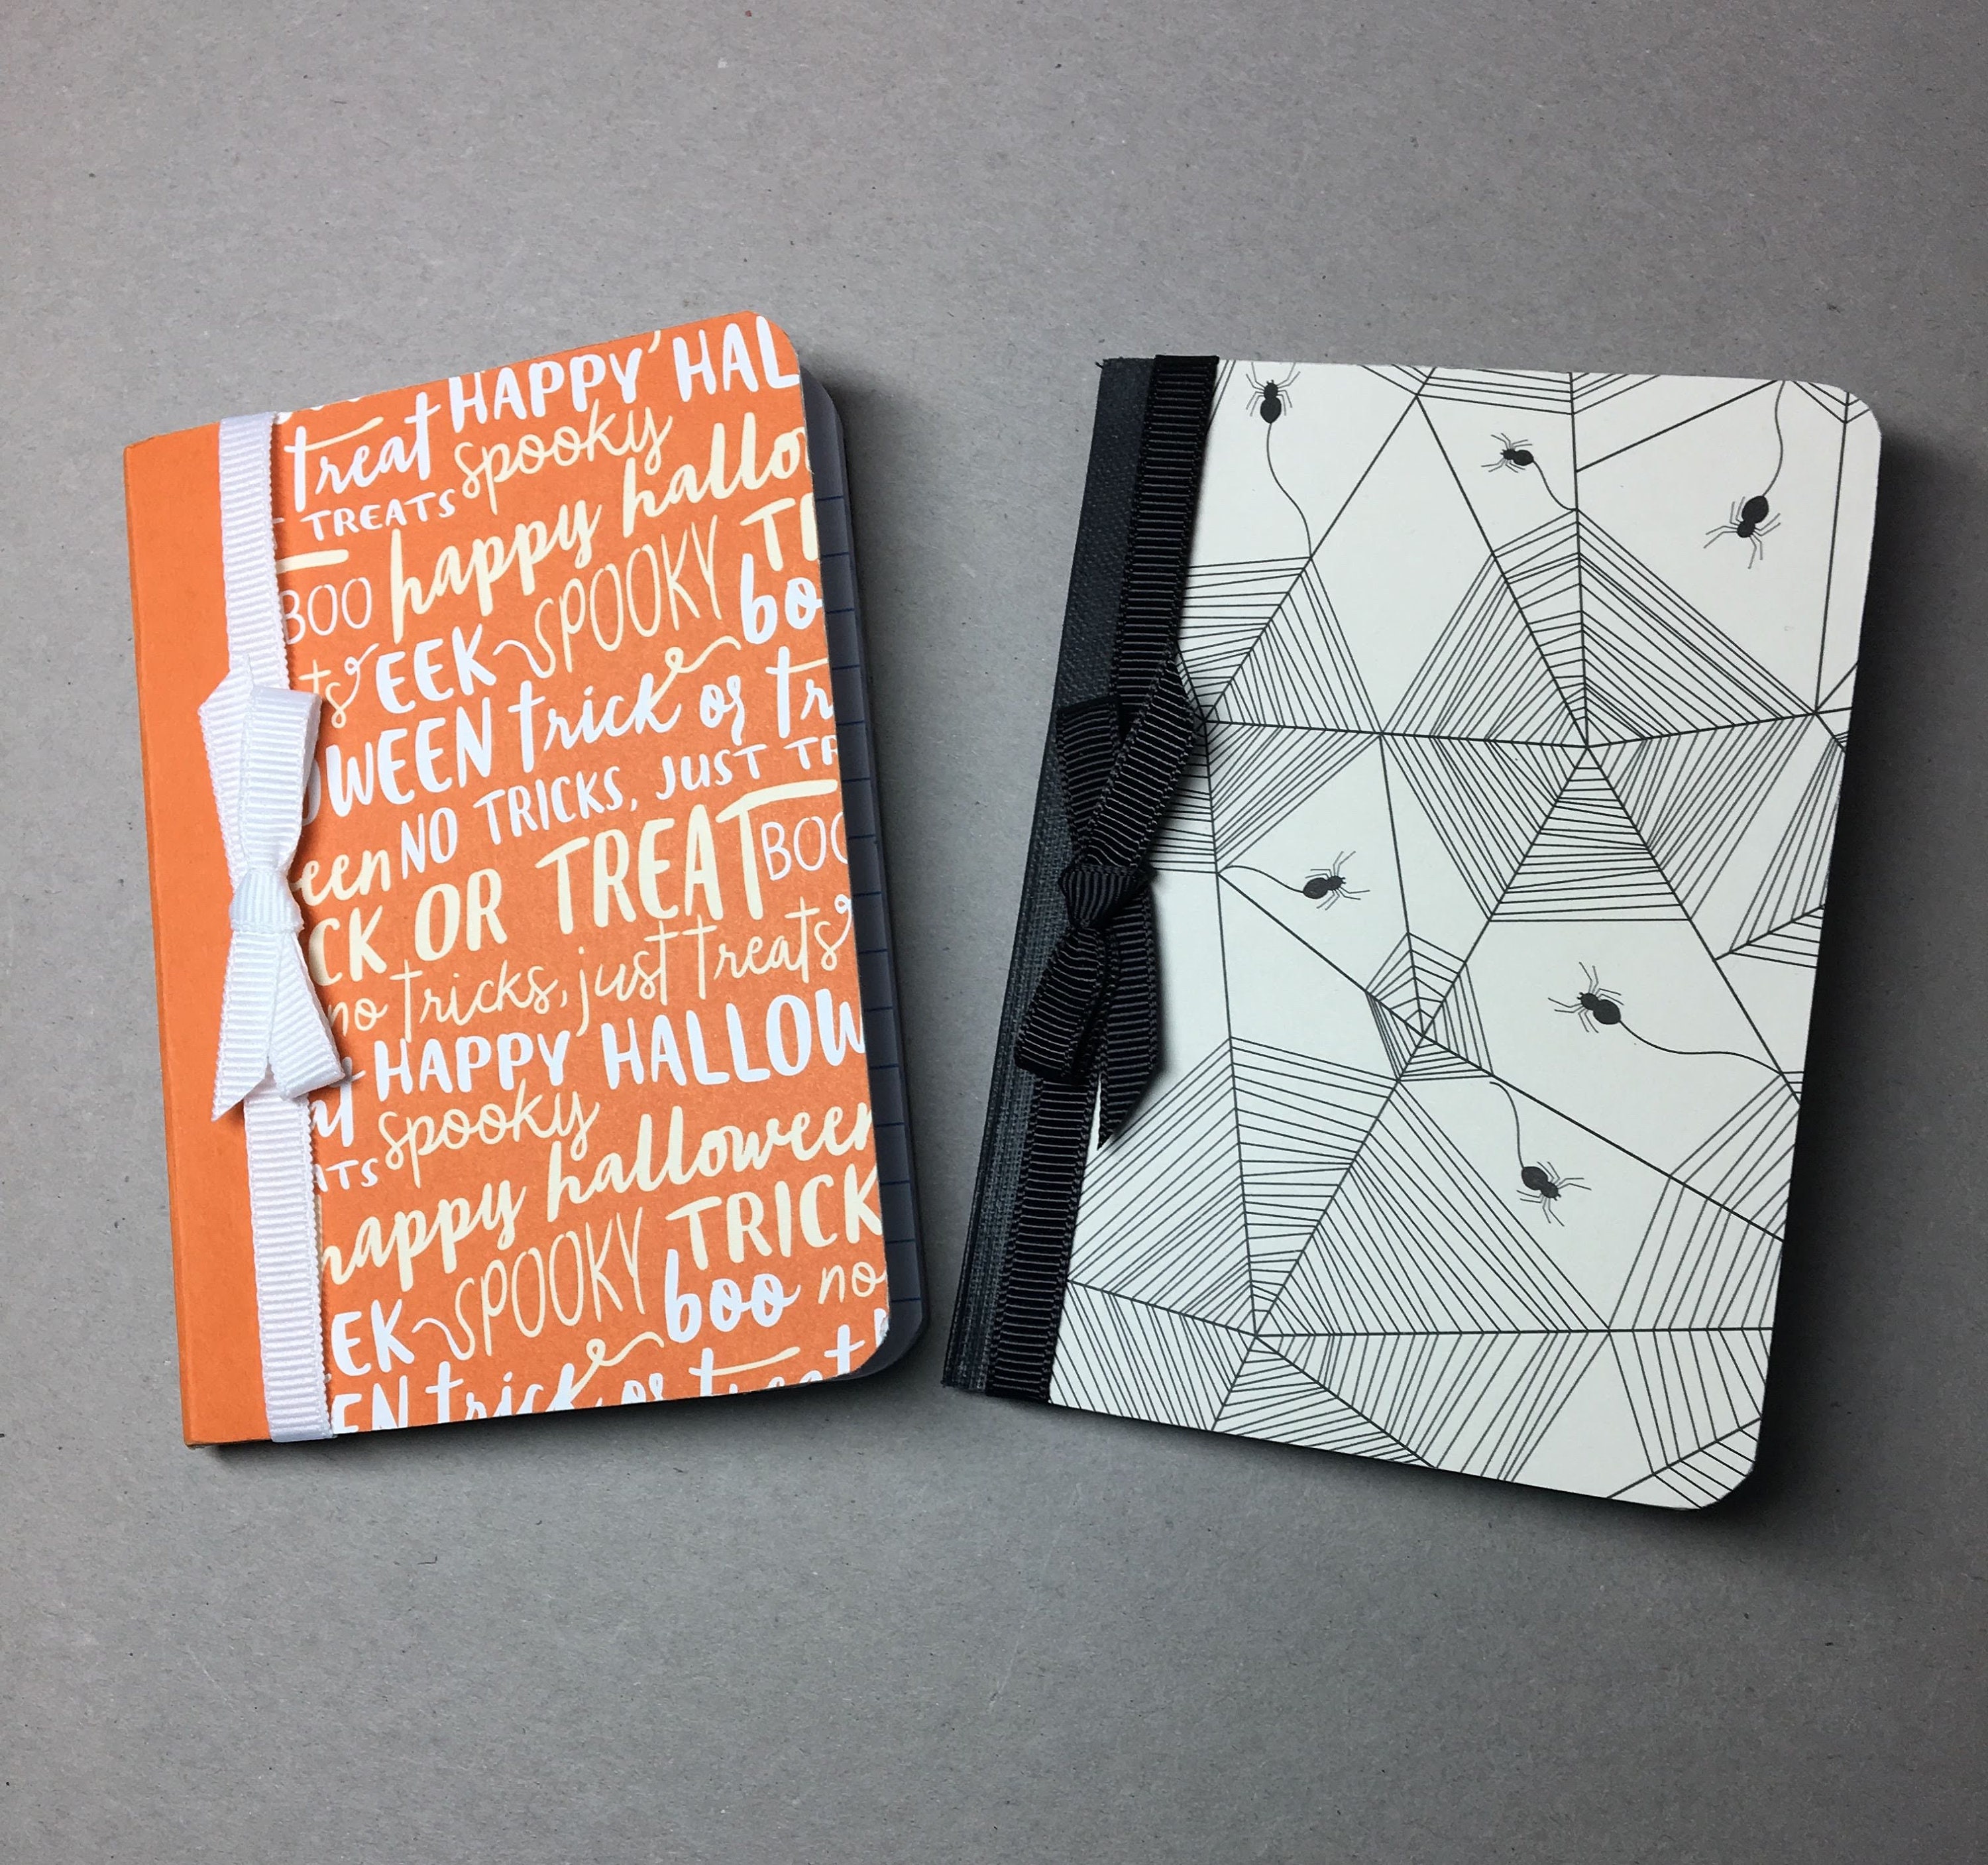 treat HAPPY HAL
TREATS spooky
BOO happy hallo
EEK SPOOKY bo
WEEN trick or tr
NO TRICKS, JUST TR
een
CK OR TREAT BOO
no tricks, just treats
HAPPY HALLOW
ATS spooky
happy halloween
EK SPOOKY TRICK
boo no
EN trick or treat